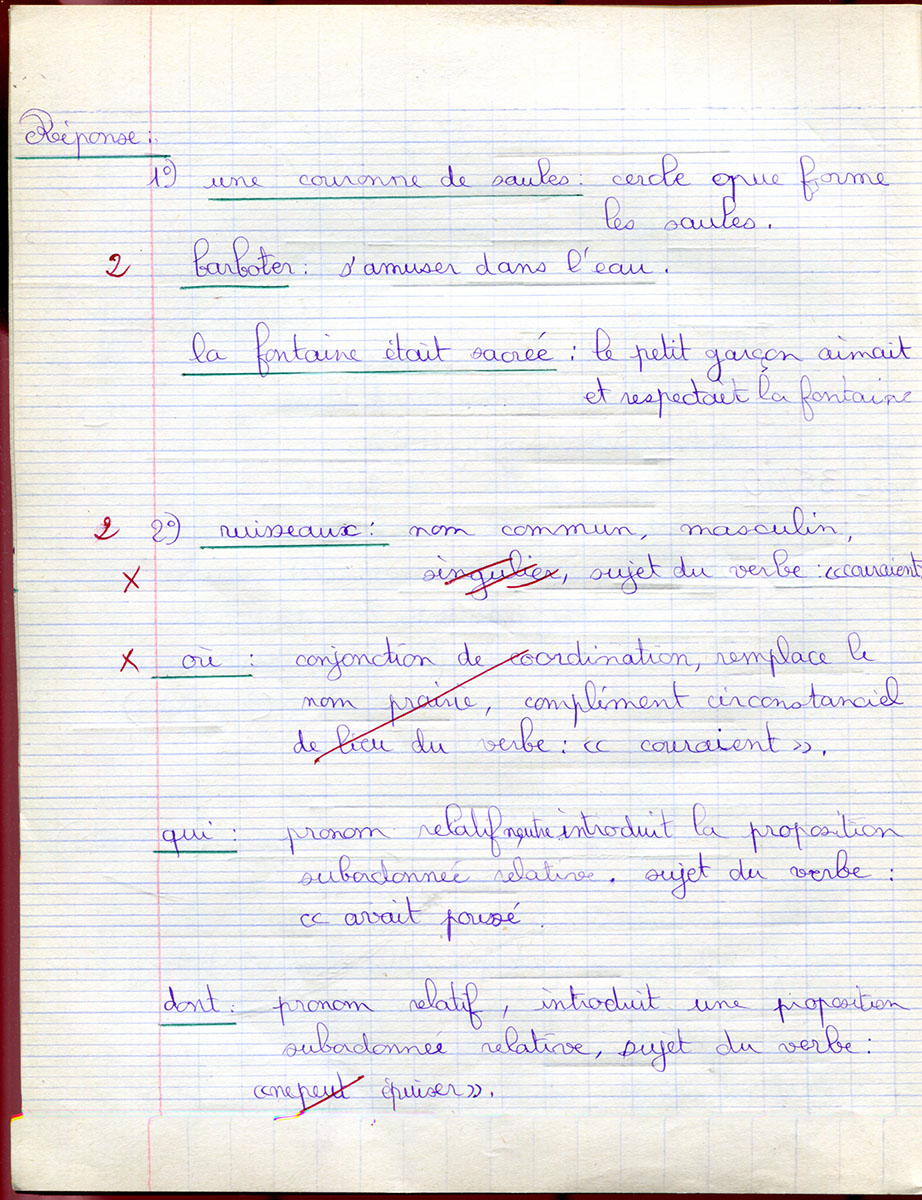 Réponse :
1°) une couronne de saules : cercle que forme
les saules.
2 barboter : s'amuser dans l'eau.
la fontaine était sacrée : le petit garçon aimait
et respectait la fontaine
2 2°) ruisseaux : nom commun, masculin,
X singulier, sujet du verbe : «couraient
X où : conjonction de coordination, remplace le
nom prairie, complément circonstanciel
de lieu du verbe : « couraient ».
qui : pronom relatif neutre introduit la proposition
subordonnée relative. sujet du verbe :
« avait poussé.
dont : pronom relatif, introduit une proposition
subordonnée relative, sujet du verbe :
«ne peut épuiser».